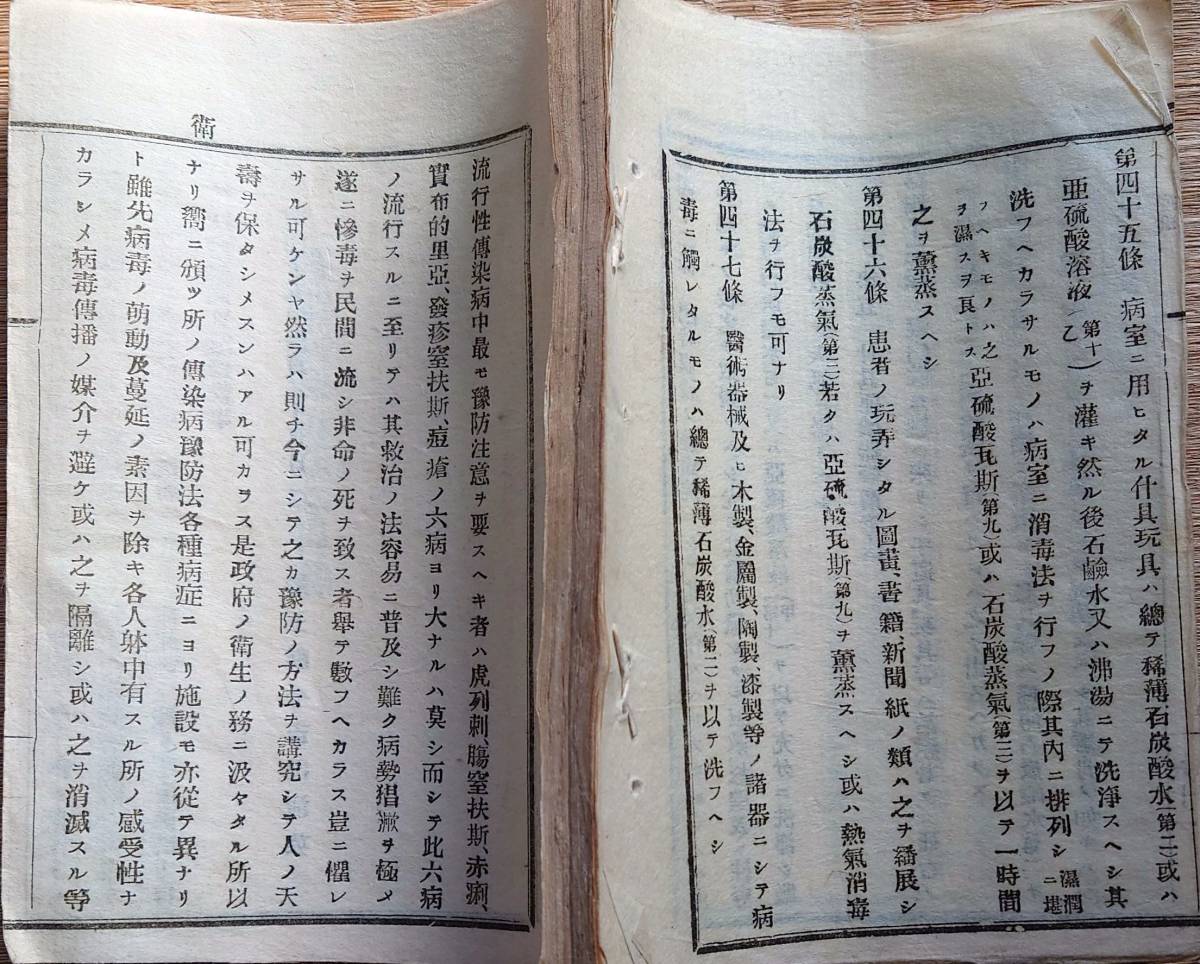 第四十五條　病室ニ用ヒタル什具玩具ハ總テ稀薄石炭酸水(第二)或ハ
亜硫酸溶液(第十一乙)ヲ灌キ然ル後石鹼水又ハ沸湯ニテ洗淨スヘシ其
洗フヘカラサルモノハ病室ニ消毒法ヲ行フノ際其内ニ排列シ濕潤ニ堪
フヘキモノハ之ヲ濕スヲ良トス亞硫酸瓦斯(第九)或ハ石炭酸蒸氣(第三)ヲ以テ一時間
之ヲ薰蒸スヘシ
第四十六條　患者ノ玩弄シタル圖畫、書籍、新聞紙ノ類ハ之ヲ繙展シ
石炭酸蒸氣(第三)若クハ亞硫酸瓦斯(第九)ヲ薰蒸スヘシ或ハ熱氣消毒
法ヲ行フモ可ナリ
第四十七條　醫術器械及ヒ木製、金屬製、陶製、漆製等ノ諸器ニシテ病
毒ニ觸レタルモノハ總テ稀薄石炭酸水(第二)ヲ以テ洗フヘシ
衛
流行性傳染病中最モ豫防注意ヲ要スヘキ者ハ虎列刺、膓窒扶斯、赤痢、
實布的里亞、發疹窒扶斯、痘瘡ノ六病ヨリ大ナルハ莫シ而シテ此六病
ノ流行スルニ至リテハ其救治ノ法容易ニ普及シ難ク病勢猖獗ヲ極メ
遂ニ慘毒ヲ民間ニ流シ非命ノ死ヲ致ス者擧テ數フヘカラス豈ニ懼レ
サル可ケンヤ然ラハ則チ今ニシテ之カ豫防ノ方法ヲ講究シテ人ノ天
壽ヲ保タシメスンハアル可カラス是政府ノ衛生ノ務ニ汲々タル所以
ナリ嚮ニ頒ツ所ノ傳染病豫防法各種病症ニヨリ施設モ亦從テ異ナリ
ト雖先病毒ノ萌動及蔓延ノ素因ヲ除キ各人躰中有スル所ノ感受性ナ
カラシメ病毒傳播ノ媒介ヲ避ケ或ハ之ヲ隔離シ或ハ之ヲ消滅スル等